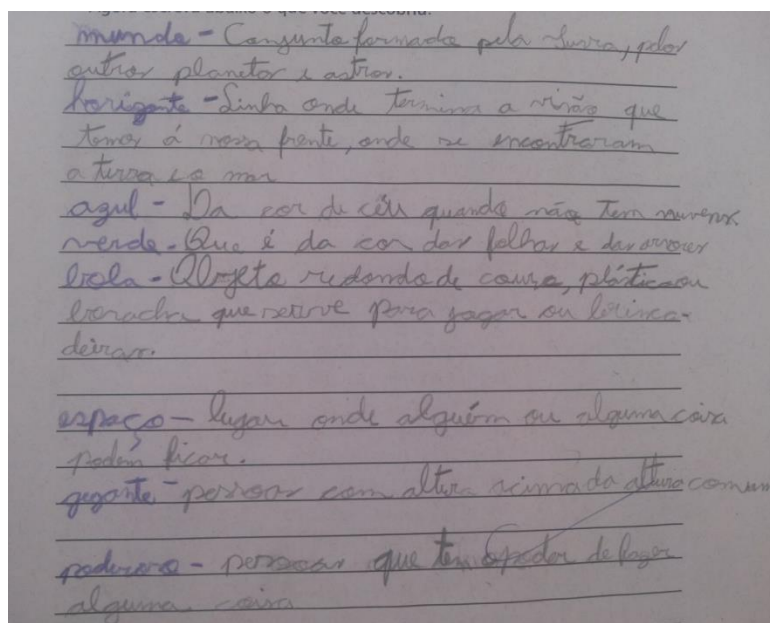 Agora escreva abaixo o que você descobriu.
mundo - Conjunto formado pela terra, pelos
outros planetas e astros.
horizonte - Linha onde termina a visão que
temos á nossa frente, onde se encontraram
a terra e o mar
azul - Da cor de céu quando não tem nuvens
verde - Que é da cor das folhas e das arvores
bola - Objeto redondo de couro, plástico ou
borracha que serve para jogar ou brinca-
deiras.
espaço - lugar onde alguém ou alguma coisa
podem ficar.
gigante - pessoas com altura acima da altura comum
poderoso - pessoas que tem o poder de fazer
alguma coisa